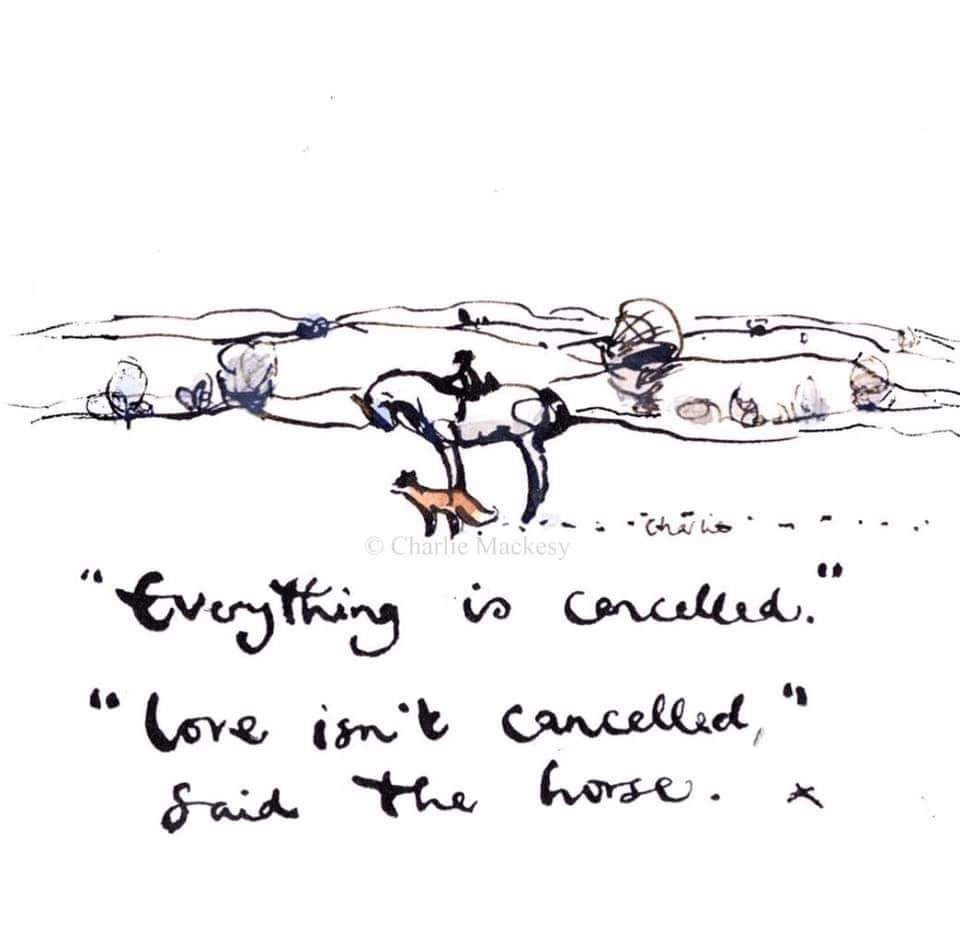 Charlie
© Charlie Mackesy
"Everything is cancelled."
"Love isn't cancelled,"
said the horse. x